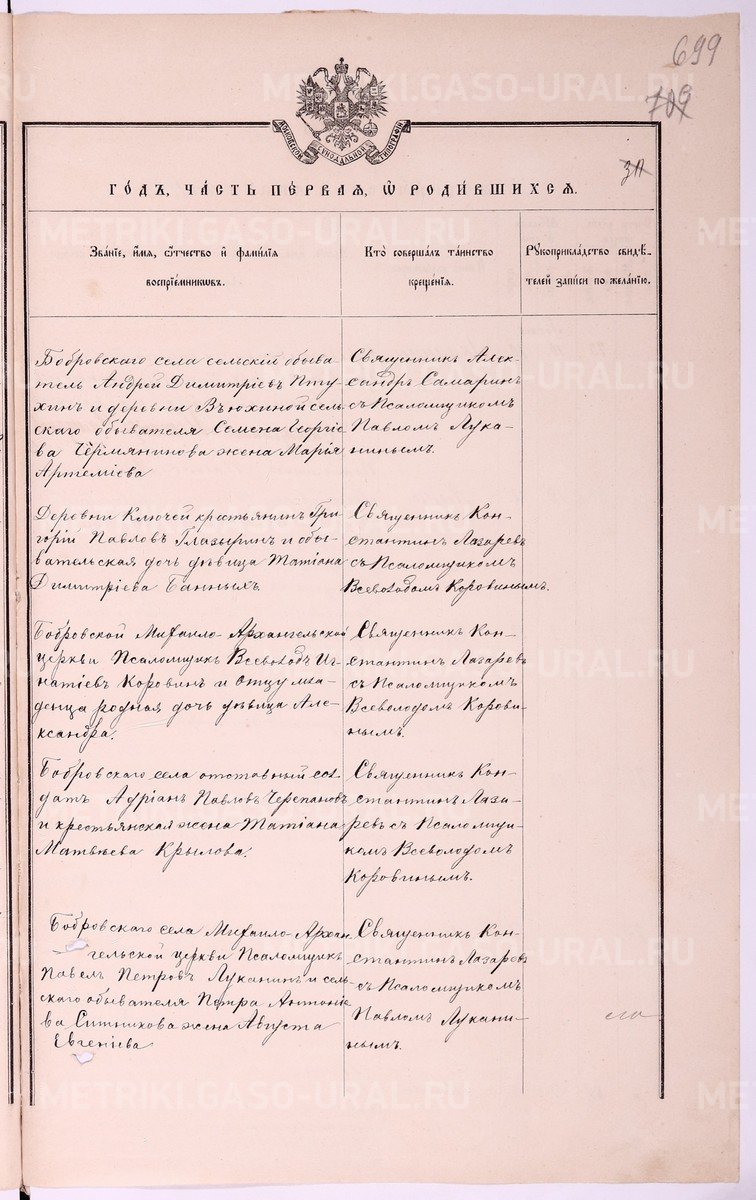 699
709
METRIKI.GASO-URAL.RU
МОСКОВСКОЙ СѴНОДАЛЬНОЙ ТИПОГРАФІИ
зп
ГО́ДЪ, ЧА́СТЬ ПЕ́РВАЯ, Ѽ РОДИ́ВШИХСЯ.
Зва́ніе, и́мя, ѻ҆́тчество и҆ фами́лія
воспріе́мниковъ.
Кто̀ соверша́лъ та́инство
креще́нія.
Рꙋкоприкла́дство свидѣ́-
телей за́писи по жела́нію.
Бобровскаго села сельскій обыва-
тель Андрей Димитріевъ Пту-
хинъ и деревни Вьюхиной сель-
скаго обывателя Семена Георгіе
ва Чермянинова жена Марія
Артеміева
Священникъ Алек-
сандръ Самаринъ
съ Псаломщикомъ
Павломъ Лука-
нинымъ.
Деревни Ключей крестьянинъ Гри-
горій Павловъ Глазыринъ и обы-
вательская дочь дѣвица Татіана
Димитріева Банныхъ.
Священникъ Кон-
стантинъ Лазаревъ
съ Псаломщикомъ
Всеволодомъ Коровинымъ.
Бобровской Михаило-Архангельской
церкви Псаломщикъ Всеволодъ Иг-
натіевъ Коровинъ и отцу мла-
денца родная дочь дѣвица Але-
ксандра.
Священникъ Кон-
стантинъ Лазаревъ
съ Псаломщикомъ
Всеволодомъ Корови-
нымъ.
Бобровскаго села отставный сол-
датъ Адріанъ Павловъ Черепановъ
и крестьянская жена Татіана
Матвѣева Крылова.
Священникъ Кон-
стантинъ Лаза-
ревъ съ Псаломщи-
комъ Всеволодомъ
Коровинымъ.
Бобровскаго села Михаило-Архан
гельской церкви Псаломщикъ
Павелъ Петровъ Луканинъ и сель-
скаго обывателя Петра Антоніе
ва Ситникова жена Августа
Евгеніева
Священникъ Кон-
стантинъ Лазаревъ
съ Псаломщикомъ
Павломъ Лукани-
нымъ.
METRIKI.GASO-URAL.RU